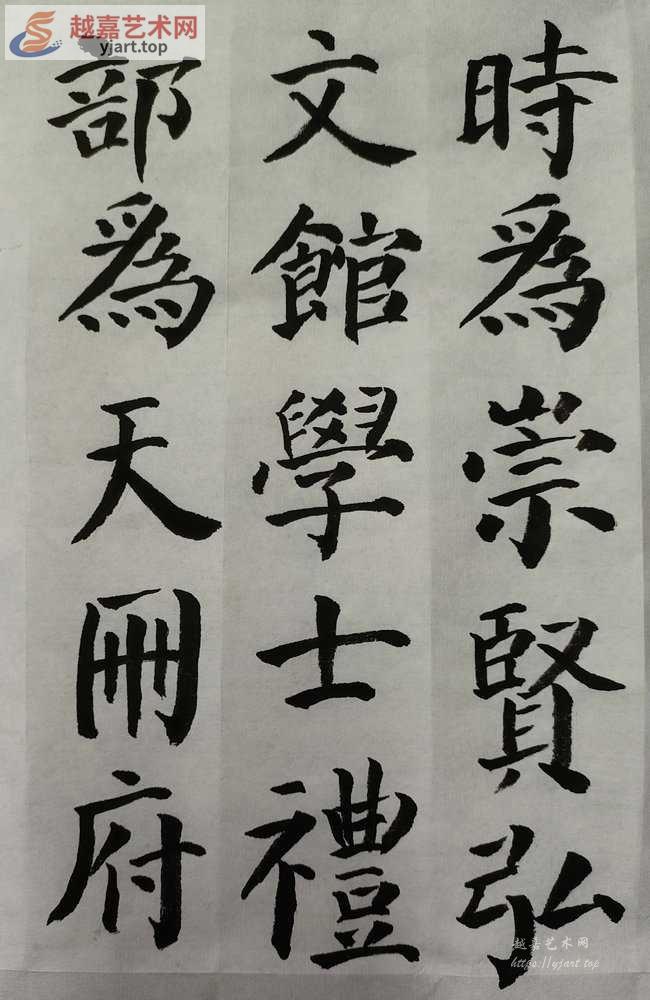 越嘉艺术网
yjart.top
時爲崇賢弘
文館學士禮
部爲天冊府
越嘉艺术网
https://yjart.top